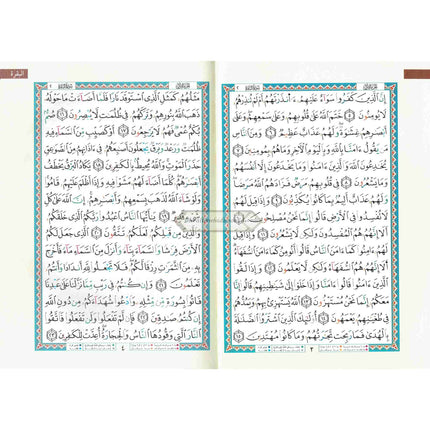 البقرة
إِنَّ ٱلَّذِينَ كَفَرُوا۟ سَوَآءٌ عَلَيْهِمْ ءَأَنذَرْتَهُمْ أَمْ لَمْ تُنذِرْهُمْ
لَا يُؤْمِنُونَ ٦ خَتَمَ ٱللَّهُ عَلَىٰ قُلُوبِهِمْ وَعَلَىٰ سَمْعِهِمْ وَعَلَىٰٓ
أَبْصَٰرِهِمْ غِشَٰوَةٌ وَلَهُمْ عَذَابٌ عَظِيمٌ ٧ وَمِنَ ٱلنَّاسِ
مَن يَقُولُ ءَامَنَّا بِٱللَّهِ وَبِٱلْيَوْمِ ٱلْءَاخِرِ وَمَا هُم بِمُؤْمِنِينَ ٨
يُخَٰدِعُونَ ٱللَّهَ وَٱلَّذِينَ ءَامَنُوا۟ وَمَا يَخْدَعُونَ إِلَّآ أَنفُسَهُمْ
وَمَا يَشْعُرُونَ ٩ فِى قُلُوبِهِم مَّرَضٌ فَزَادَهُمُ ٱللَّهُ مَرَضًا
وَلَهُمْ عَذَابٌ أَلِيمٌۢ بِمَا كَانُوا۟ يَكْذِبُونَ ١٠ وَإِذَا قِيلَ لَهُمْ
لَا تُفْسِدُوا۟ فِى ٱلْأَرْضِ قَالُوٓا۟ إِنَّمَا نَحْنُ مُصْلِحُونَ ١١
أَلَآ إِنَّهُمْ هُمُ ٱلْمُفْسِدُونَ وَلَٰكِن لَّا يَشْعُرُونَ ١٢ وَإِذَا قِيلَ
لَهُمْ ءَامِنُوا۟ كَمَآ ءَامَنَ ٱلنَّاسُ قَالُوٓا۟ أَنُؤْمِنُ كَمَآ ءَامَنَ ٱلسُّفَهَآءُ
أَلَآ إِنَّهُمْ هُمُ ٱلسُّفَهَآءُ وَلَٰكِن لَّا يَعْلَمُونَ ١٣ وَإِذَا لَقُوا۟
ٱلَّذِينَ ءَامَنُوا۟ قَالُوٓا۟ ءَامَنَّا وَإِذَا خَلَوْا۟ إِلَىٰ شَيَٰطِينِهِمْ قَالُوٓا۟ إِنَّا
مَعَكُمْ إِنَّمَا نَحْنُ مُسْتَهْزِءُونَ ١٤ ٱللَّهُ يَسْتَهْزِئُ بِهِمْ وَيَمُدُّهُمْ
فِى طُغْيَٰنِهِمْ يَعْمَهُونَ ١٥ أُو۟لَٰٓئِكَ ٱلَّذِينَ ٱشْتَرَوُا۟ ٱلضَّلَٰلَةَ
بِٱلْهُدَىٰ فَمَا رَبِحَت تِّجَٰرَتُهُمْ وَمَا كَانُوا۟ مُهْتَدِينَ ١٦
٣
مَثَلُهُمْ كَمَثَلِ ٱلَّذِى ٱسْتَوْقَدَ نَارًا فَلَمَّآ أَضَآءَتْ مَا حَوْلَهُۥ
ذَهَبَ ٱللَّهُ بِنُورِهِمْ وَتَرَكَهُمْ فِى ظُلُمَٰتٍ لَّا يُبْصِرُونَ ١٧ صُمٌّۢ
بُكْمٌ عُمْىٌ فَهُمْ لَا يَرْجِعُونَ ١٨ أَوْ كَصَيِّبٍ مِّنَ ٱلسَّمَآءِ فِيهِ
ظُلُمَٰتٌ وَرَعْدٌ وَبَرْقٌ يَجْعَلُونَ أَصَٰبِعَهُمْ فِىٓ ءَاذَانِهِم مِّنَ ٱلصَّوَٰعِقِ
حَذَرَ ٱلْمَوْتِ وَٱللَّهُ مُحِيطٌۢ بِٱلْكَٰفِرِينَ ١٩ يَكَادُ ٱلْبَرْقُ يَخْطَفُ
أَبْصَٰرَهُمْ كُلَّمَآ أَضَآءَ لَهُم مَّشَوْا۟ فِيهِ وَإِذَآ أَظْلَمَ عَلَيْهِمْ قَامُوا۟
وَلَوْ شَآءَ ٱللَّهُ لَذَهَبَ بِسَمْعِهِمْ وَأَبْصَٰرِهِمْ إِنَّ ٱللَّهَ عَلَىٰ كُلِّ
شَىْءٍ قَدِيرٌ ٢٠ يَٰٓأَيُّهَا ٱلنَّاسُ ٱعْبُدُوا۟ رَبَّكُمُ ٱلَّذِى خَلَقَكُمْ
وَٱلَّذِينَ مِن قَبْلِكُمْ لَعَلَّكُمْ تَتَّقُونَ ٢١ ٱلَّذِى جَعَلَ لَكُمُ
ٱلْأَرْضَ فِرَٰشًا وَٱلسَّمَآءَ بِنَآءً وَأَنزَلَ مِنَ ٱلسَّمَآءِ مَآءً فَأَخْرَجَ
بِهِۦ مِنَ ٱلثَّمَرَٰتِ رِزْقًا لَّكُمْ فَلَا تَجْعَلُوا۟ لِلَّهِ أَندَادًا وَأَنتُمْ
تَعْلَمُونَ ٢٢ وَإِن كُنتُمْ فِى رَيْبٍ مِّمَّا نَزَّلْنَا عَلَىٰ عَبْدِنَا
فَأْتُوا۟ بِسُورَةٍ مِّن مِّثْلِهِۦ وَٱدْعُوا۟ شُهَدَآءَكُم مِّن دُونِ ٱللَّهِ
إِن كُنتُمْ صَٰدِقِينَ ٢٣ فَإِن لَّمْ تَفْعَلُوا۟ وَلَن تَفْعَلُوا۟ فَٱتَّقُوا۟
ٱلنَّارَ ٱلَّتِى وَقُودُهَا ٱلنَّاسُ وَٱلْحِجَارَةُ أُعِدَّتْ لِلْكَٰفِرِينَ ٢٤
٤